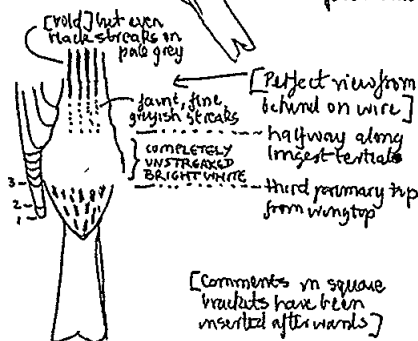 [Bold] but even
black streaks on
pale grey
faint, fine
greyish streaks
[Perfect view from
behind on wire]
halfway along
longest tertials
COMPLETELY
UNSTREAKED
BRIGHT WHITE
third primary tip
from wingtop
3
2
1
[Comments in square
brackets have been
inserted afterwards]